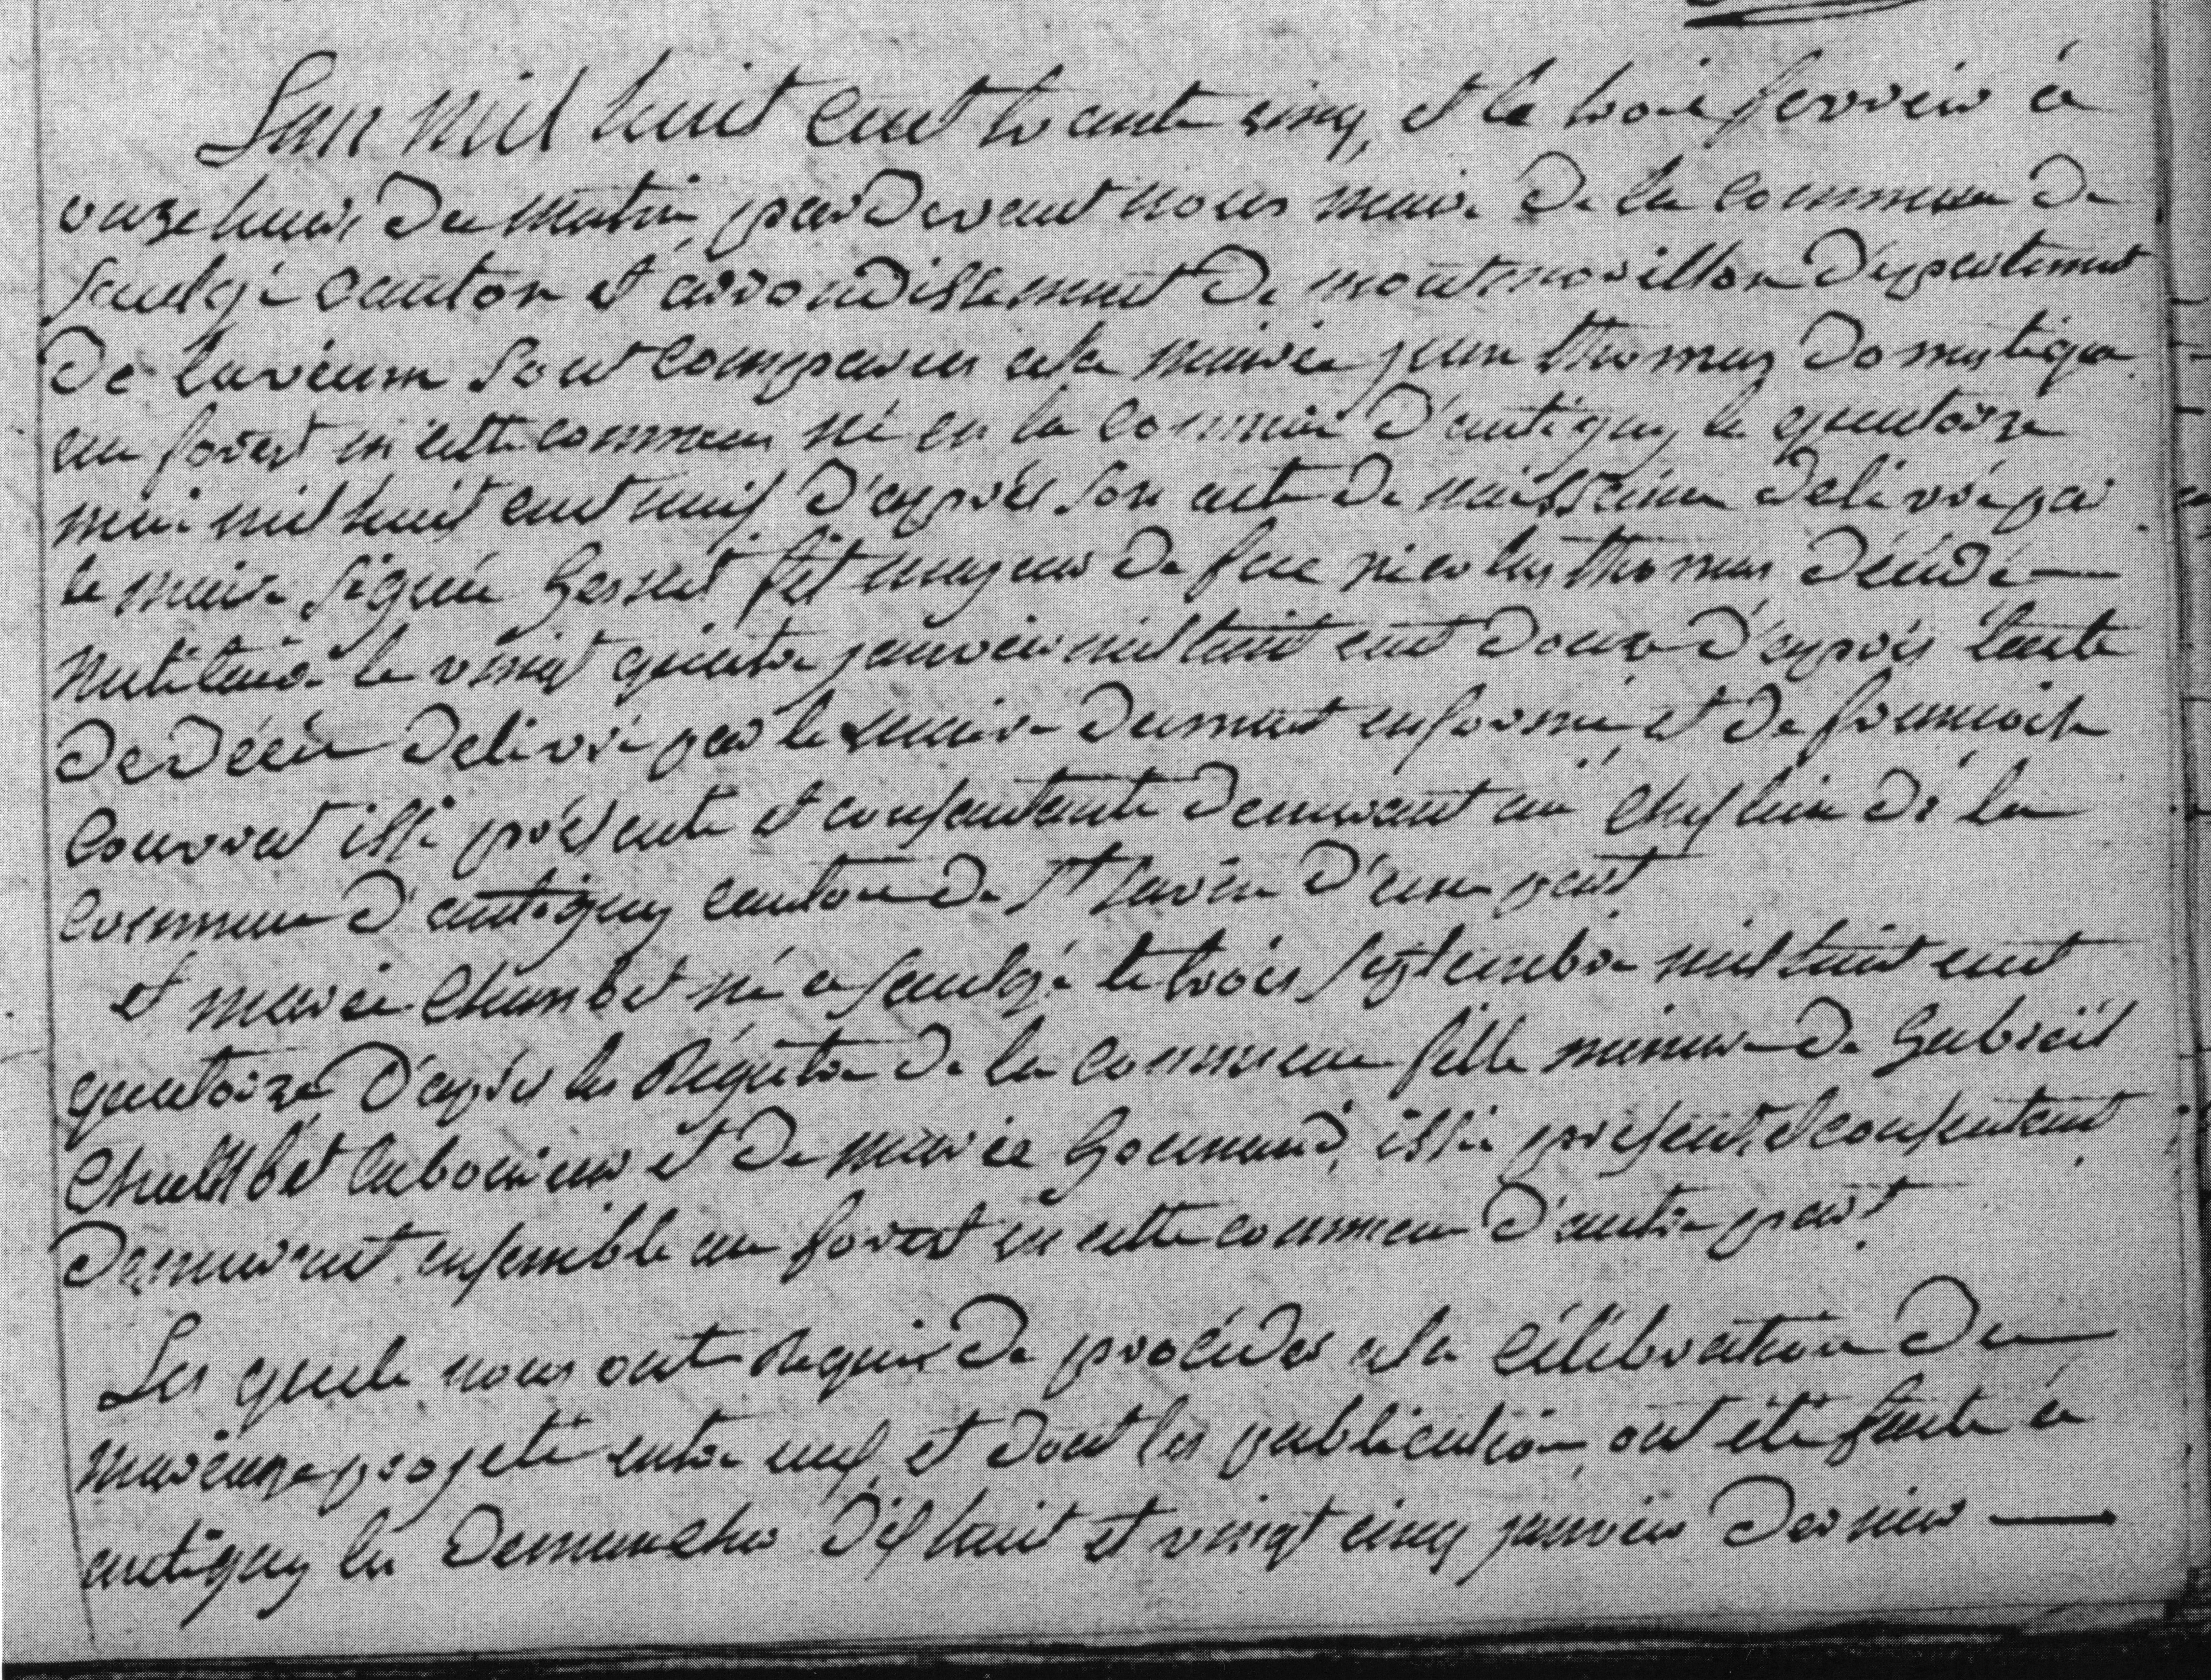 Lan mil huit cent trante cinq, et le trois fevrier à
onze heures du matin, pardevant nous maire de la commune de
Saulgé canton et arrondissement de montmorillon département
de la vienne sont comparus a la mairie jean thomas domestique
au forest en cette commune né en la commune d'antigny le quatorze
mai mil huit cent neuf d'après son acte de naissance délivré par
le maire signé fils majeur de feu nicolas thomas décédé
le vingt quatre janvier mil huit cent douze d'après lacte
de décès délivré par le maire dument en forme et de françoise
Couvrat issi présente et consentante demeurant au de la
commune d'antigny canton de St Savin d'une part
et marie Chambet né a Saulgé le trois Septembre mil huit cent
quatorze d'après les Régistre de la commune fille mineure de Gabriël
Chambet laboureur et de marie issi présent et consentant
demeurant ensemble au forest en cette commune d'autre part
Les quels nous ont Requis de procéder a la célébration du
mariage projeté entre eux, et dont les publication ont été faite à
antigny les Demanches dix huit et vingt cinq janvier dernier —